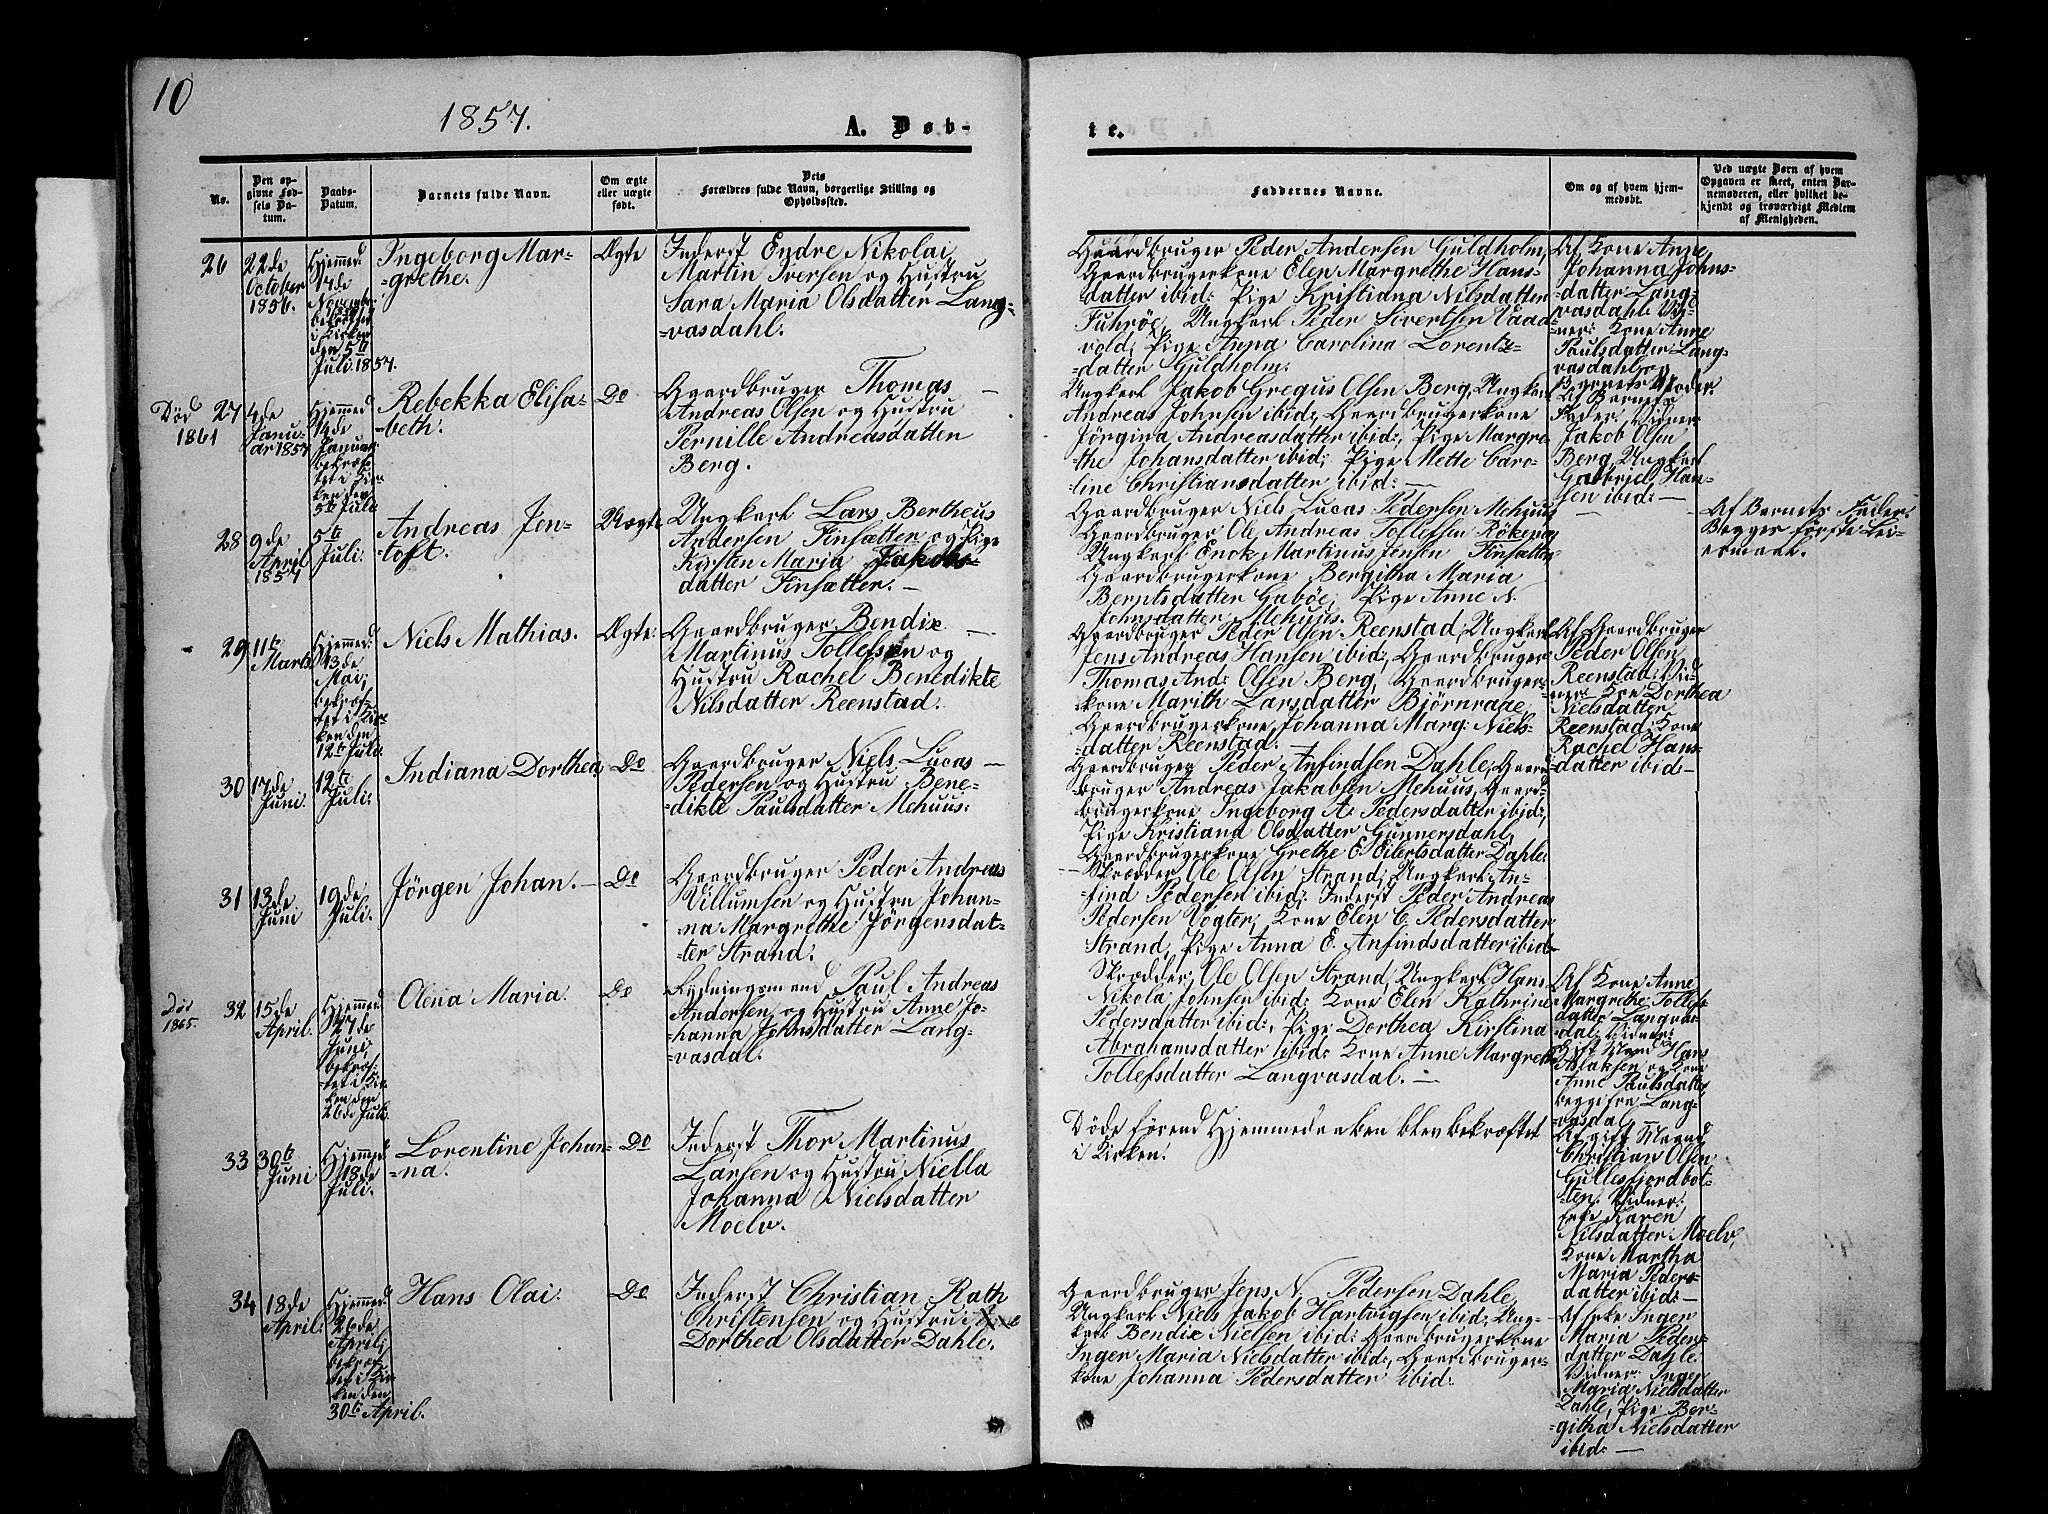 10
1857.
A. Døb-
te.
No.
Den op-
givne Fød-
sels Da-
tum.
Daabs-
Datum.
Barnets fulde Navn.
Om ægte
eller uægte
født.
Dets
Forældres fulde Navn, borgerlige Stilling og
Opholdssted.
Faddernes Navne.
Om og af hvem hjem-
medøbt.
Ved uægte Børn af hvem
Opgaven er skeet, enten Bar-
nemoderen, eller hvilket be-
kjendt og troværdigt Medlem
af Menigheden.
26
22de
October
1856.
Hjemmed.
14de
November
bekræftet
i Kirken
den 5te
Juli 1857.
Ingeborg Mar-
=grethe.
Ægte
Inderst Endre Nikolai
Martin Iversen og Hustru
Sara Maria Olsdatter Lang=
=vasdahl.
Gaardbruger Peder Andersen Guldholm,
Gaardbrugerkone Elen Margrethe Hans-
datter ibid: Pige Kristiana Nilsdatter
Fuhrøe, Ungkarl Peder Sivertsen Vaad-
vold, Pige Anna Carolina Lorentz-
datter Guldholm.
Af Kone Anne
Johanna Johns-
=datter Lang-
vasdahl: Vid-
ner: Kone Anne
Paulsdatter Lang-
vasdahl og
Barnets Moder.
Død
1861
27
4de
Janu-
ar 1857
Hjemmed
14de
Januar
bekræf-
tet i Kir-
ken den
5te Juli
Rebekka Elisa-
=beth.
Do
Gaardbruger Thomas
Andreas Olsen og Hustru
Pernille Andreasdatter
Berg.
Ungkarl Jakob Gregus Olsen Berg, Ungkarl
Andreas Johnsen ibid:, Gaardbrugerkone
Jørgina Andreasdatter ibid:, Pige Margre-
the Johansdatter ibid:, Pige Mette Caro-
line Christiansdatter ibid: —
Af Barnets
Fader. Vidner
Jakob Olsen
Berg, Ungkarl
Gabriel Han-
sen ibid: —
28
9de
April
1857
5te
Juli.
Andreas Jen-
=toft.
Uægte
Ungkarl Lars Bertheus
Andersen Finsætter og Pige
Karsten Maria Jakobs=
datter Finsætter. —
Gaardbruger Niels Lucas Pedersen Mehuus
Gaardbruger Ole Andreas Tollefsen Rökenes
Ungkarl Enok Martinus Jensen Finsætter
Gaardbrugerkone Bergitha Maria
Berntsdatter Gaböe, Pige Anne N.
Johnsdatter Mehuus.
Af Barnets Fader.
Begges første Lei-
ermaal.
29
11te
Marts
Hjemmed.
13de
Mai,
bekræf-
tet i Kir-
ken den
12te Juli.
Niels Mathias.
Ægte:
Gaardbruger Bendix —
Martinus Tollefsen og
Hustru Rachel Benedikte
Nilsdatter Reenstad.
Gaardbruger Peder Olsen Reenstad, Ungkarl
Jens Andreas Hansen ibid:, Gaardbruger
Thomas And: Olsen Berg, Gaardbruger-
kone Marith Larsdatter Bjørnraae,
Gaardbrugerkone Johanna Marg: Niels-
=datter Reenstad. —
Af Gaardbruger
Peder Olsen
Reenstad: Vid-
ner Kone Dorthea
Nielsdatter
Reenstad, Kone
Rachel Hans-
datter ibid—
30
17de
Juni.
12te
Juli:
Indiana Dorthea,
Do
Gaardbruger Niels Lucas —
Pedersen og Hustru Bene-
=dikte Paulsdatter Mehuus:
Gaardbruger Peder Anfindsen Dahle, Gaard-
bruger Andreas Jakobsen Mehuus, Gaard-
brugerkone Ingeborg A. Pedersdatter ibid:,
Pige Kristiana Olsdatter Gunnersdahl,
Gaardbrugerkone Grethe E. Eilertsdatter Dahle.
31
13de
Juni
19de
Juli.
Jörgen Johan. —
Do
Gaardbruger Peder Andreas
Villumsen og Hustru Johan-
na Margrethe Jörgensdat-
=ter Strand.
Skrædder Ole Olsen Strand, Ungkarl An-
=find Pedersen ibid:, Inderst Peder Andreas
Pedersen Vogter, Kone Elen C. Pedersdatter
Strand, Pige Anna E. Anfindsdatter ibid—
Død
1865.
32
15de
April.
Hjemmed.
27de
Juni,
bekræf-
tet i Kir-
ken den
26de Juli.
Olena Maria.
Do
Rydningsmand Paul Andreas
Andersen og Hustru Anne Jo-
=hanna Johnsdatter Lang-
vasdal.
Skrædder, Ole Olsen Strand, Ungkarl Hans
Nikolai Johnsen ibid: Kone Elen Kathrine
Pedersdatter ibid:, Pige Dorthea Kirstina
Abrahamsdatter ibid: Kone Anne Margrethe
Tollefsdatter Langvasdal. —
Af Kone Anne
Margrethe Tollefs-
datter Langvas-
=dal: Vidner
Gift Mand Hans
Aslaksen og Kone
Anne Paulsdatter
begge fra Lang-
=vasdal
33
30te
Juni
Hjemmed.
18de
Juli.
Lorentine Johan-
=na.
Do
Inderst Thor Martinus
Larsen og Hustru Niella
Johanna Nielsdatter
Moelv.
Døde førend Hjemmedaaben blev bekræftet
i Kirken.
Af gift Mand
Christian Olsen
Gullesfjordbot-
=ten. Vidner.
Enke Karen
Nilsdatter Moelv,
Kone Martha
Maria Peders-
datter ibid: —
34
18de
April:
Hjemmed.
26de
April,
bekræf-
tet i Kir-
ken den
30te April.
Hans Olai:
Do
Inderst Christian Rath
Christensen og Hustru
Dorthea Olsdatter Dahle.
Gaardbruger Jens N. Pedersen Dahle,
Ungkarl Niels Jakob Hartvigsen ibid:, Ung-
karl Bendix Nielsen ibid: Gaardbrugerkone
Inger Maria Nielsdatter ibid:, Gaardbruger-
kone Johanna Pedersdatter ibid:
Af Enke Inger
Maria Peders-
datter Dahle.
Vidner: Inger
Maria Nielsdatter
Dahle, Pige Ber-
=githa Nielsdatter
ibid: —